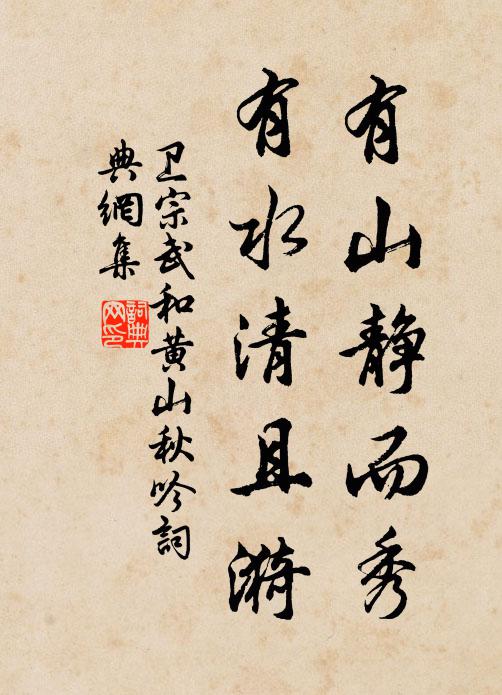 有山静而秀
有水清且漪
卫宗武和黄山秋吟詞
典網集
詞典
网印